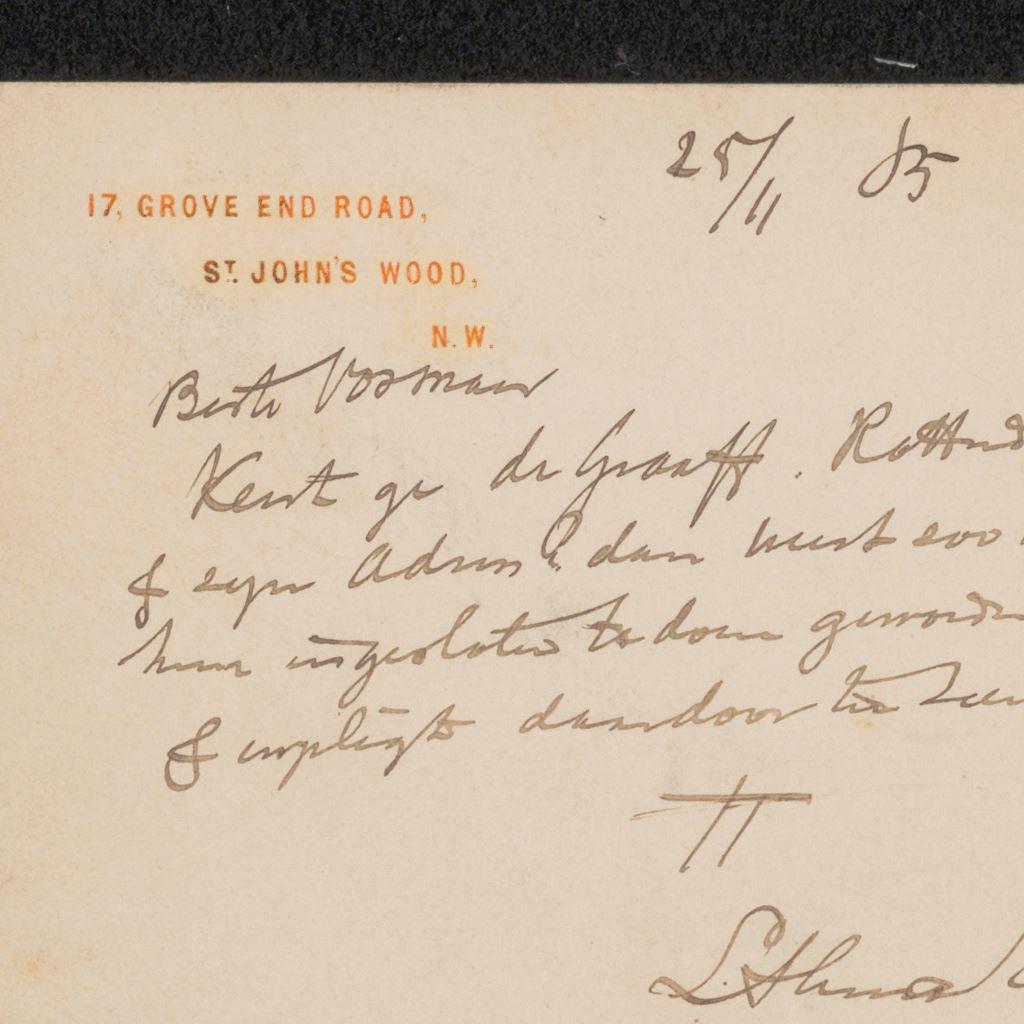 25/11 85
17, GROVE END ROAD,
ST. JOHN'S WOOD,
N. W.
Beste Vosmaer
Kent ge de Graaff. Rotterd
& zyn Adres? dan weest zoo
hem ingesloten te doen geworden
& verpligt daardoor ten zeer
TT
L. Alma